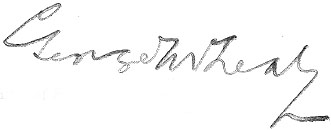 George W Healy